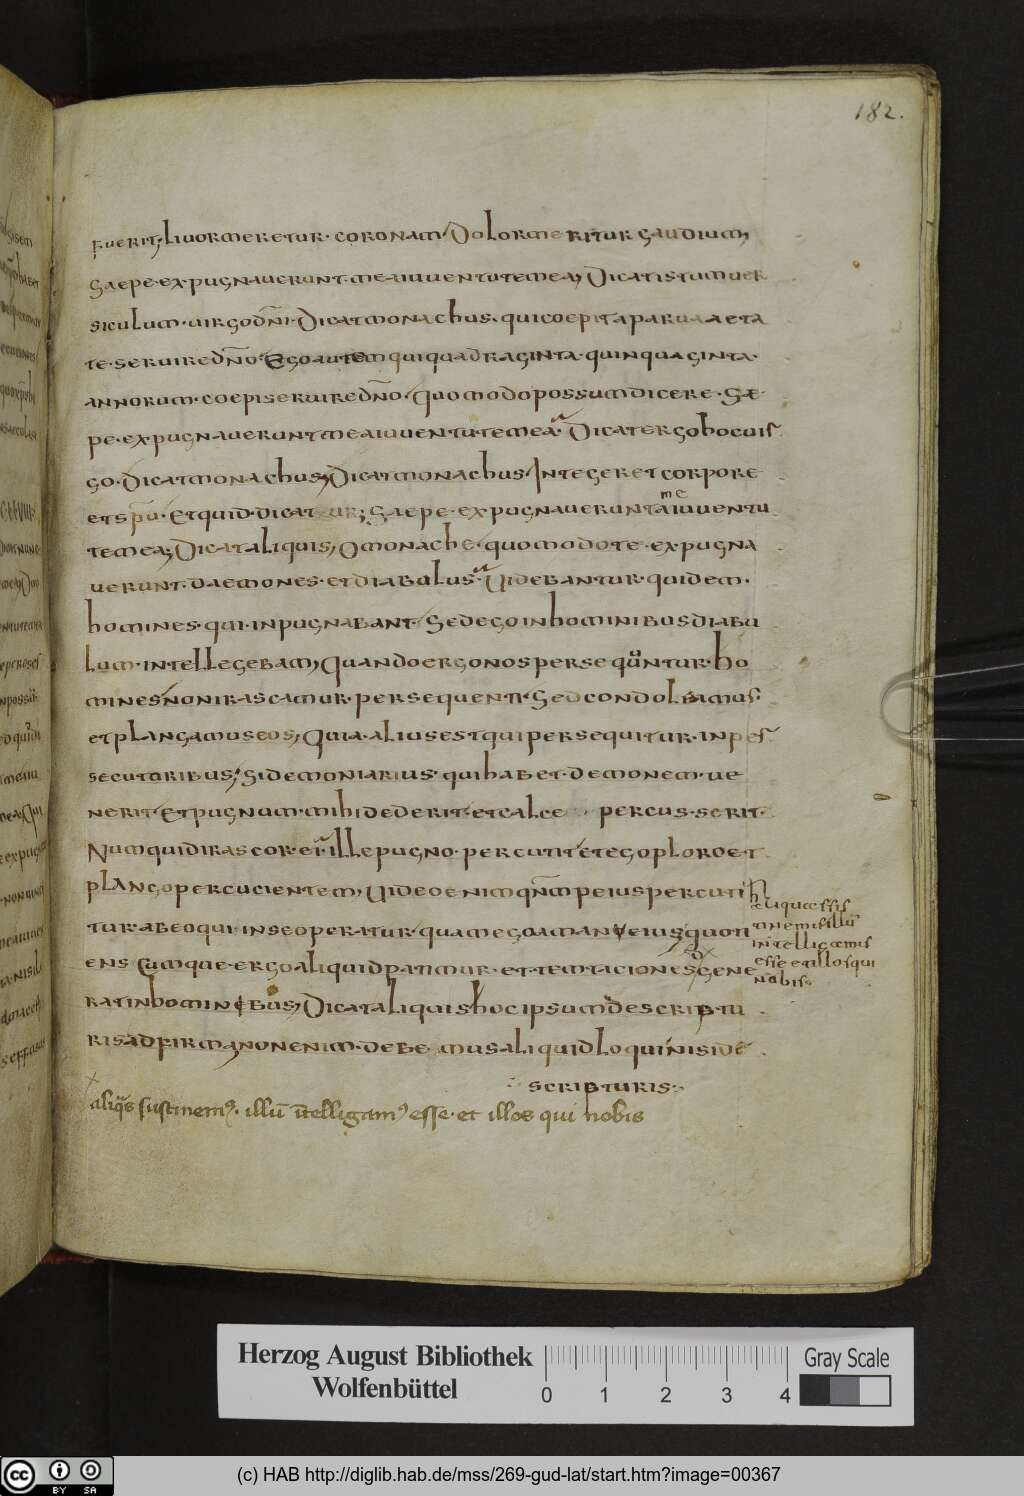 182.
fuerit; livor meretur. coronam. Dolor meritur gaudium,
Saepe. expugnaverunt. mea iuventute mea, Dicat istum ver
siculum. virgo dn̄i. Dicat monachus. qui coepit a parva aeta
te. servire dn̄o. Ego autem qui quadraginta. quinquaginta.
annorum. coepi servire dn̄o. Quomodo possum dicere. Sae
pe. expugnaverunt mea iuventute mea. Dicat ergo hoc vir
go. Dicat monachus, Dicat monachus. Integer et corpore
et spu. Et quid. dicatur; Saepe. expugnaverunt a iuventu
me
te mea; Dicat aliquis, O monache. quomodo te. expugna
verunt. daemones. et diabulus. Videbantur. quidem.
homines. qui. inpugnabant. Sed ego in hominibus diabu
lum. intellegebam, Quando ergo nos persequntur. ho
mines non irascamur. persequenti. Sed condoleamus.
et plangamus eos, Quia. alius est qui persequitur. in per
secutoribus; Si demoniarius. qui habet. demonem. ve
nerit. et pugnum. mihi dederit. et calce percus. serit.
Numquid irascor. ei. ille pugno. percutit. et ego ploro et
plango percucientem, Video enim qn̄m peius percuti
tur. ab eo qui in se operatur. quam ego a manu eius quoti
ens Cumque. ergo aliquid patimur. et temtaciones gene
rat in hominibus, Dicat aliquis hoc ipsum de scribtu
ris adfirma non enim. debemus aliquid loqui nisi de
scribturis.
aliq̄s sustinem9. illū ītelligam9 esse. et illos qui nobis
aliquossis
tinem illū
intellicamus
esse et illos qui
nobis.
Herzog August Bibliothek
Wolfenbüttel
0 1 2 3 4
Gray Scale
cc BY SA
(c) HAB http://diglib.hab.de/mss/269-gud-lat/start.htm?image=00367